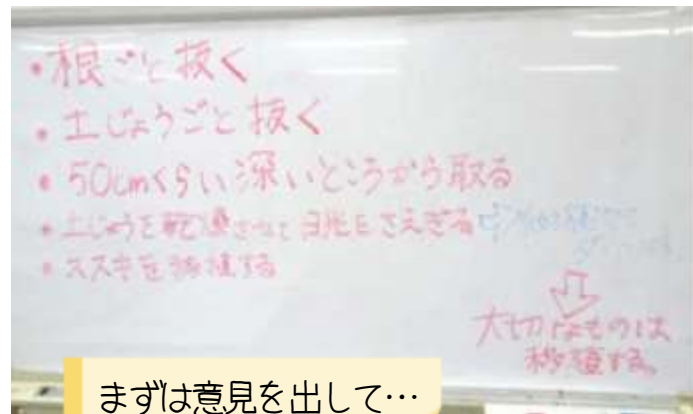 ・根ごと抜く
・土じょうごと抜く
・50cmくらい深いところから取る
・土じょうを乾燥させて日光をさえぎる
・ススキを移植する
⇩
大切なものは
移植する。
まずは意見を出して…